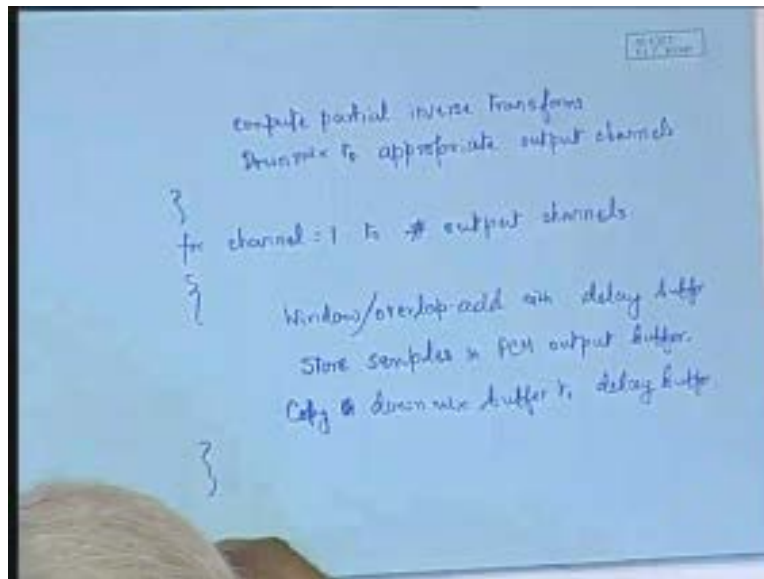 compute partial inverse Transforms
Downmix to appropriate output channels
}
for channel = 1 to # output channels
{
Window/overlap-add with delay buffer
Store samples in PCM output buffer.
Copy downmix buffer to delay buffer
}